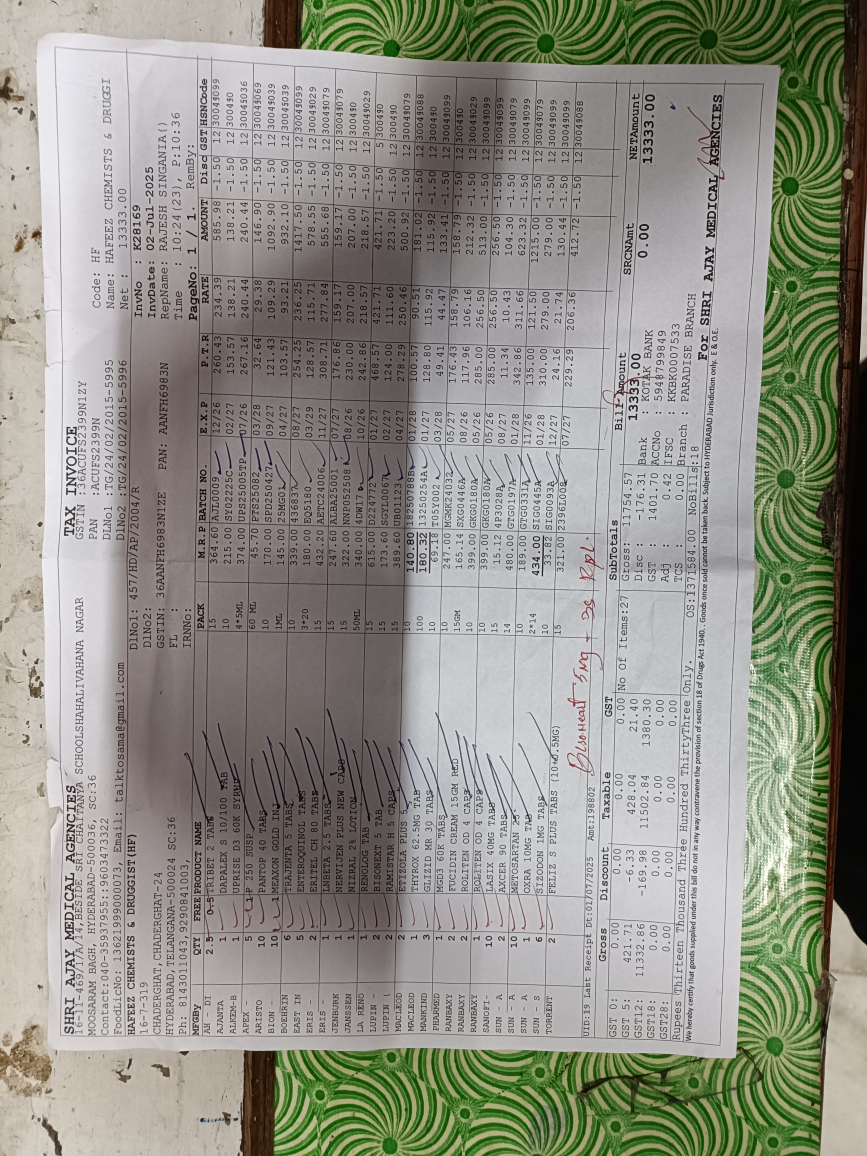 SHRI AJAY MEDICAL AGENCIES
TAX INVOICE
16-11-469/1/A/14, BESIDE SRI CHAITANYA SCHOOLSHAHALIVAHANA NAGAR
MOOSARAM BAGH, HYDERABAD-500036, SC:36
Contact:040-35937955:9603473322
FoodLicNo: 13621999000073, Email: talktosama@gmail.com
GSTIN :36ACUFS2399N1ZY
PAN :ACUFS2399N
DLNo1 :TG/24/02/2015-5995
DLNo2 :TG/24/02/2015-5996
Code: HF
Name: HAFEEZ CHEMISTS & DRUGGI
Net : 13333.00
HAFEEZ CHEMISTS & DRUGGIST(HF)
16-7-319
CHADERGHAT,CHADERGHAT-24
HYDERABAD,TELANGANA-500024 SC:36
Ph:8143011043,9290841003,
DlNo1: 457/HD/AP/2004/R
DlNo2:
GSTIN: 36AANFH6983N1ZE PAN: AANFH6983N
FL :
IRNNo:
InvNo K28169
InvDate: 02-Jul-2025
RepName: RAJESH SINGANIA()
Time : 10:24(23), P:10:36
PageNo: 1 / 1. RemBy:
MFGBy QTY FREE PRODUCT NAME PACK M.R.P BATCH NO. E.X.P P.T.R RATE AMOUNT Disc GST HSNCode
AH - DI 2.5 0.5 TRIBET 2 TABS 15 364.60 AJL0009 12/26 260.43 234.39 585.98 -1.50 12 30049099
AJANTA 1 DAPALEX 10/100 TAB 10 215.00 SY02225C 02/27 153.57 138.21 138.21 -1.50 12 300490
ALKEM-B 1 UPRISE D3 60K SYRUP 4*5ML 374.00 UPS25005TP 07/26 267.16 240.44 240.44 -1.50 12 30045036
APEX - 5 P 250 SUSP 60 ML 45.70 PTS25082 03/28 32.64 29.38 146.90 -1.50 12 30049069
ARISTO 10 PANTOP 40 TABS 10 170.00 SPD250427 09/27 121.43 109.29 1092.90 -1.50 12 30049039
BION - 10 1 MEAXON GOLD INJ 1ML 145.00 25MG01 04/27 103.57 93.21 932.10 -1.50 12 30045039
BOEHRIN 6 TRAJENTA 5 TABS 10 339.00 436837 08/27 254.25 236.25 1417.50 -1.50 12 30049099
EAST IN 5 ENTEROQUINOL TABS 3*20 180.00 EQ5180 03/29 128.57 115.71 578.55 -1.50 12 30049029
ERIS - 2 ERITEL CH 80 TABS 15 432.20 AETC24006 11/27 308.71 277.84 555.68 -1.50 12 30049079
ERIS - 1 LNBETA 2.5 TABS 15 247.60 ALBA25001 07/27 176.86 159.17 159.17 -1.50 12 30049079
JENBURK 1 NERVIJEN PLUS NEW CAPS 15 322.00 NNP052508 08/26 230.00 207.00 207.00 -1.50 12 300490
JANSSEN 1 NIZRAL 2% LOTION 50ML 340.00 4DW17 10/26 242.86 218.57 218.57 -1.50 12 30049029
LA RENO 1 RENOLOG TAB 15 615.00 D224772 01/27 468.57 421.71 421.71 -1.50 5 300490
LUPIN - 2 BISONEXT 5 TAB 15 173.60 02/27 124.00 111.60 223.20 -1.50 12 300490
LUPIN ( 2 RAMISTAR H 5 CAPS 15 389.60 UB01123 04/27 278.29 250.46 500.92 -1.50 12 30049079
MACLEOD 2 ETIZOLA PLUS 5 10 140.80 18250788B 01/28 100.57 90.51 181.02 -1.50 12 30049088
MACLEOD 1 THYROX 62.5MG TAB 100 180.32 13250254A 01/27 128.80 115.92 115.92 -1.50 12 300490
MANKIND 3 GLIZID MR 30 TABS 10 69.18 TD5Y002 03/28 49.41 44.47 133.41 -1.50 12 30049099
PHARMED 1 MGD3 60K TABS 10 247.00 MGMK24032 05/27 176.43 158.79 158.79 -1.50 12 300490
RANBAXY 2 FUCIDIN CREAM 15GM RED 15GM 165.14 SXG0446A 08/26 117.96 106.16 212.32 -1.50 12 30049029
RANBAXY 2 ROLITEN OD 4 CAPS 10 399.00 GKG0180A 05/26 285.00 256.50 513.00 -1.50 12 30049099
RANBAXY 1 ROLITEN OD 4 CAPS 10 399.00 GKG0180A 05/26 285.00 256.50 256.50 -1.50 12 30049099
SANOFI- 10 LASIX 40MG TABS 15 15.12 4P3028A 08/27 11.34 10.43 104.30 -1.50 12 30049079
SUN - A 2 AXCER 90 TABS 14 480.00 GTG0197A 01/28 342.86 311.66 623.32 -1.50 12 30049099
SUN - A 10 METOSARTAN 25 10 189.00 GTG0331A 11/26 135.00 121.50 1215.00 -1.50 12 30049079
SUN - A 1 OXRA 10MG TAB 2*14 434.00 SIG0445A 01/28 310.00 279.00 279.00 -1.50 12 30049099
SUN - S 6 SIZODON 1MG TABS 10 33.82 SIG0093A 12/27 24.16 21.74 130.44 -1.50 12 30049099
TORRENT 2 FELIZ S PLUS TABS (10+0.5MG) 15 321.00 2396I008 07/27 229.29 206.36 412.72 -1.50 12 30049088
Bisoheart 5mg - 3s Repl.
UID:19 Last Receipt Dt:01/07/2025 Amt:198802
Gross Discount Taxable GST
GST 0: 0.00 0.00 0.00 0.00
GST 5: 421.71 -6.33 428.04 21.40
GST12: 11332.86 -169.98 11502.84 1380.30
GST18: 0.00 0.00 0.00 0.00
GST28: 0.00 0.00 0.00 0.00
No Of Items:27
SubTotals
Gross: 11754.57
Disc : -176.31
GST : 1401.70
Adj : 0.42
TCS : 0.00
Bill Amount
13333.00
Bank : KOTAK BANK
ACCNo : 9948799849
IFSC : KKBK0007533
Branch : PARADISE BRANCH
SRCNAmt
0.00
NETAmount
13333.00
Rupees Thirteen Thousand Three Hundred ThirtyThree Only.
OS:1371584.00 NoBills:18
We hereby certify that goods supplied under this bill do not in any way contravene the provision of section 18 of Drugs Act 1940. . Goods once sold cannot be taken back. Subject to HYDERABAD Jurisdiction only. E & O.E.
For SHRI AJAY MEDICAL AGENCIES